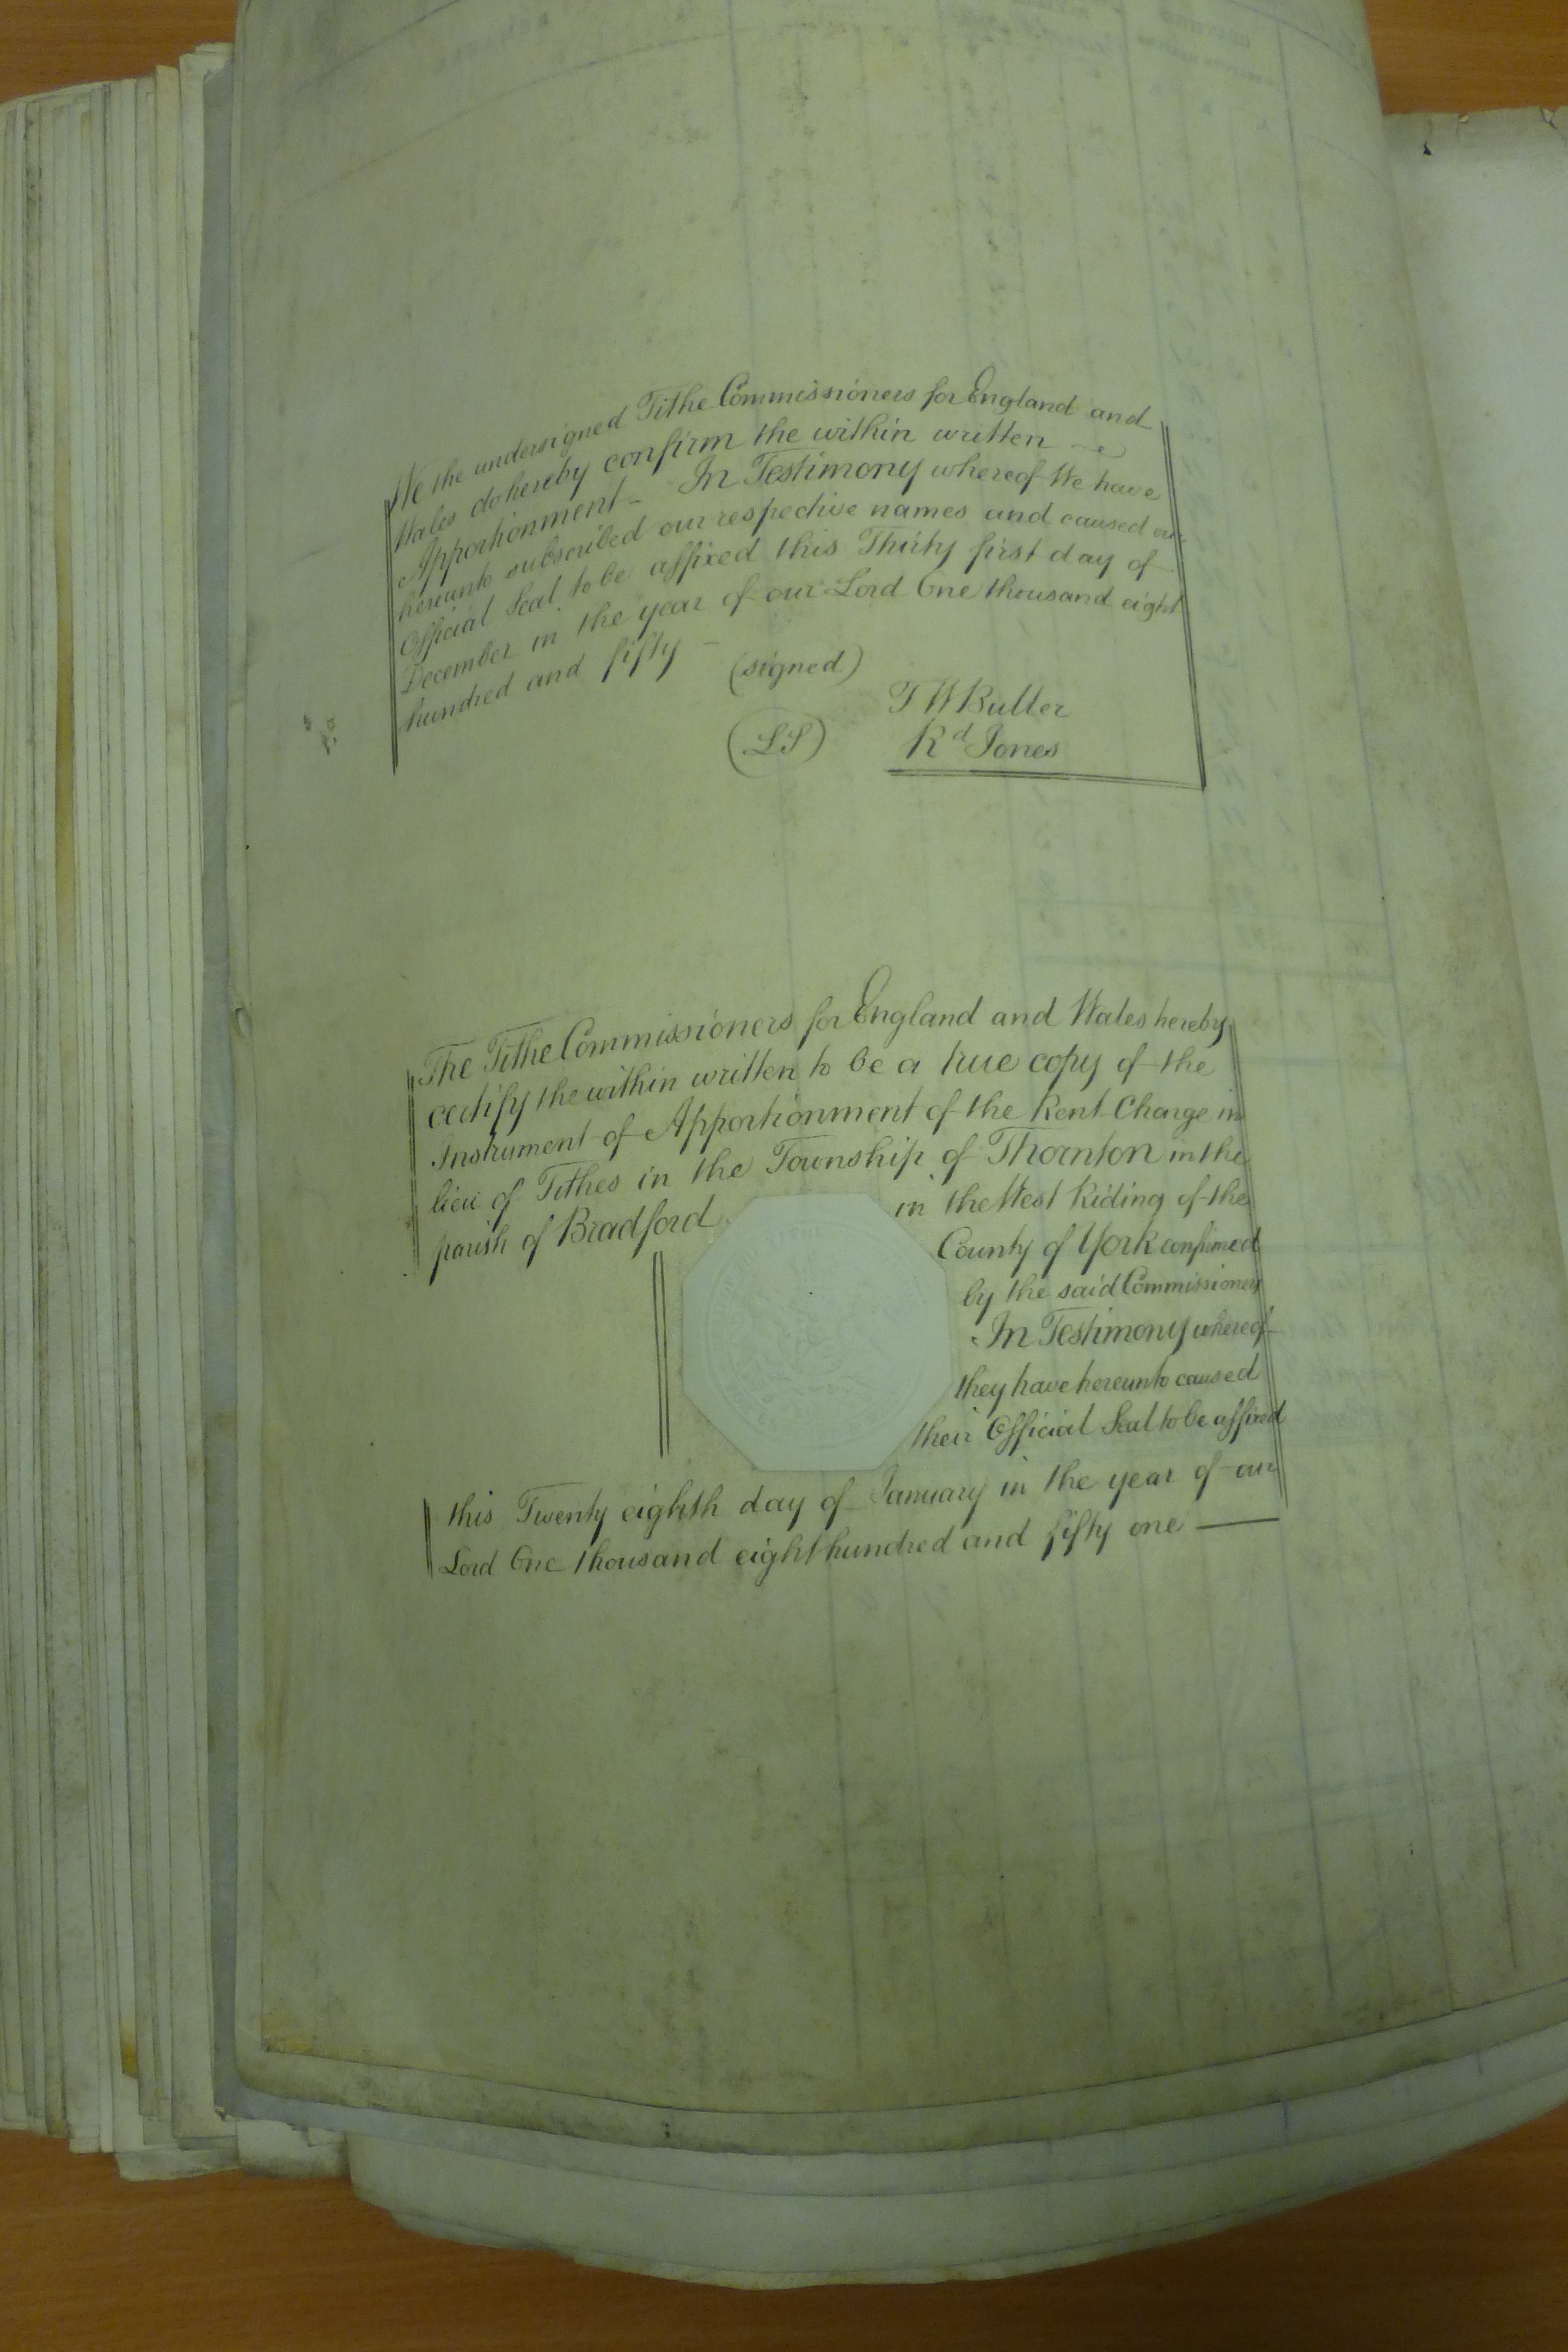 We the undersigned Tithe Commissioners for England and
Wales do hereby confirm the within written
Apportionment - In Testimony whereof We have
hereunto subscribed our respective names and caused our
Official Seal to be affixed this Thirty first day of
December in the year of our Lord One thousand eight
hundred and fifty -
(signed)
T W Buller
(LS) Rd Jones
The Tithe Commissioners for England and Wales hereby
certify the within written to be a true copy of the
Instrument of Apportionment of the Rent Charge in
lieu of Tithes in the Township of Thornton in the
parish of Bradford in the West Riding of the
County of York confirmed
by the said Commissioners
In Testimony whereof
they have hereunto caused
their Official Seal to be affixed
this Twenty eighth day of January in the year of our
Lord One thousand eight hundred and fifty one